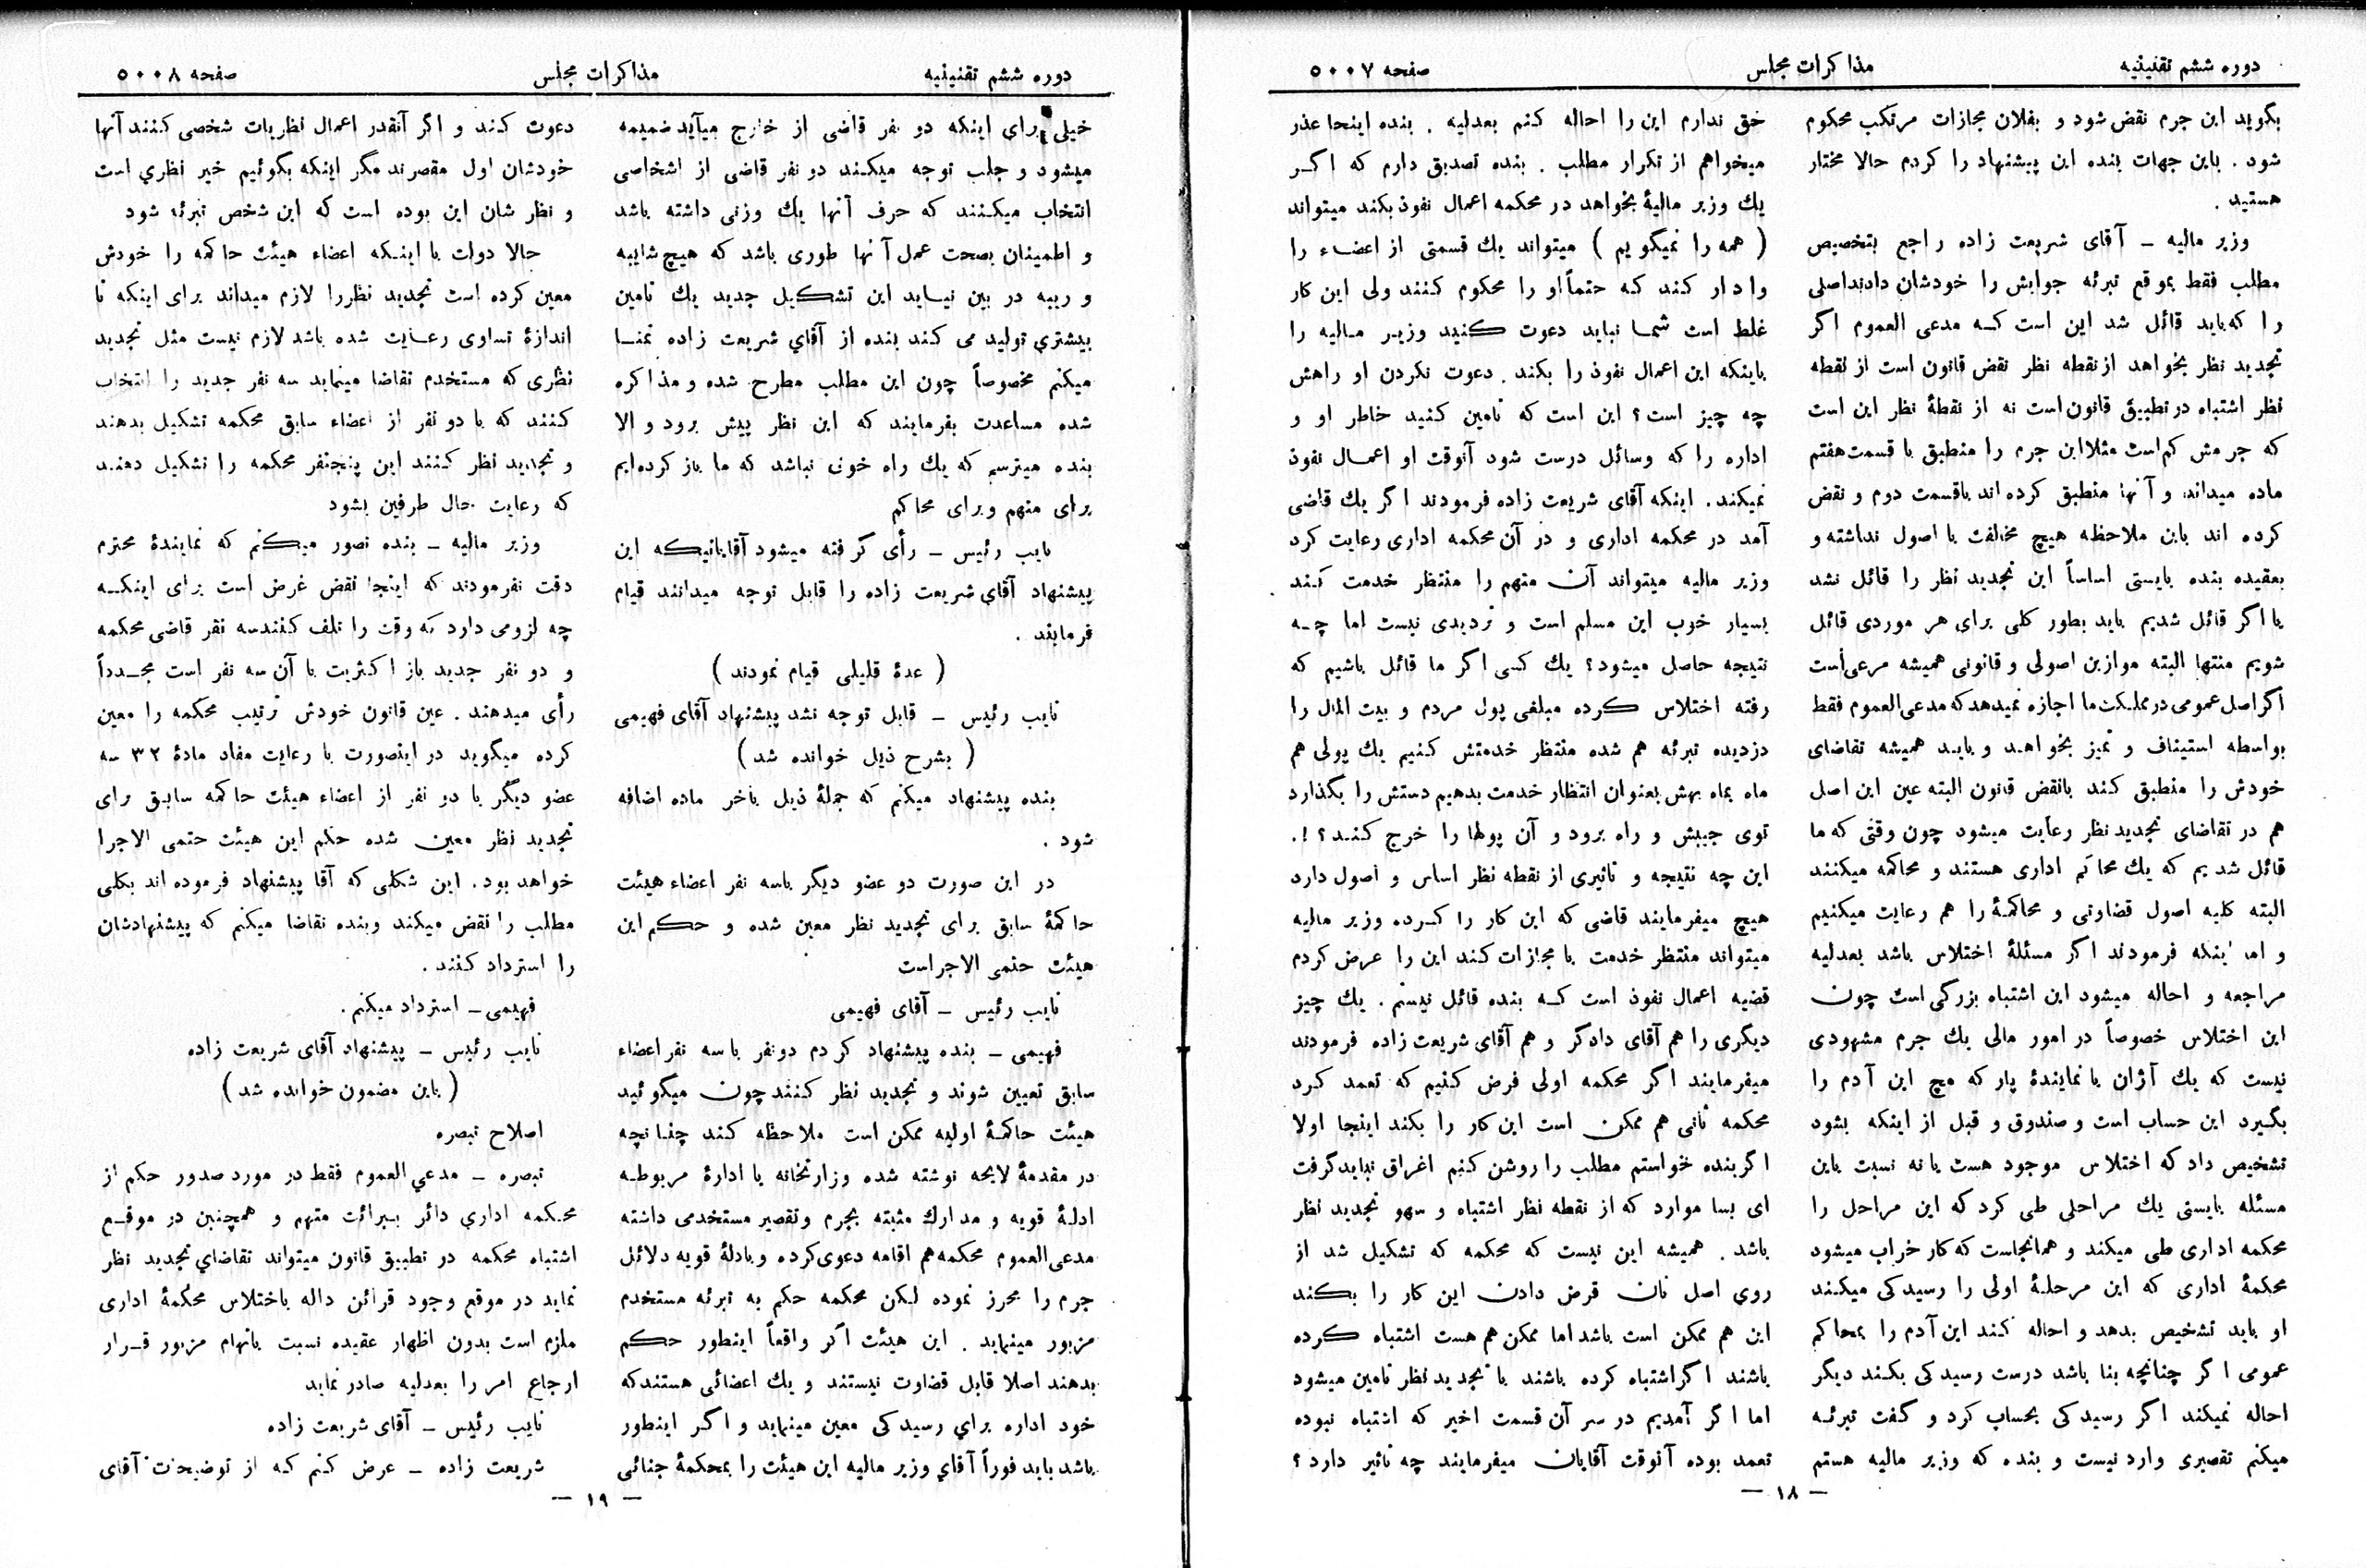 دوره ششم تقنینیه
مذاکرات مجلس
صفحه ۵۰۰۷
بگوید این جرم نقض شود و بفلان مجازات مرتکب محکوم
شود . باین جهات بنده این پیشنهاد را کردم حالا مختار
هستید .
وزیر مالیه ـ آقای شریعت زاده راجع بتخصیص
مطلب فقط بموقع تبرئه جوابش را خودشان دادند اصلی
را که باید قائل شد این است که مدعی العموم اگر
تجدید نظر بخواهد از نقطه نظر نقض قانون است از نقطه
نظر اشتباه در تطبیق قانون است نه از نقطهٔ نظر این است
که جرمش کم است مثلا این جرم را منطبق با قسمت هفتم
ماده میداند و آنها منطبق کرده اند باقسمت دوم و نقض
کرده اند باین ملاحظه هیچ مخالفت با اصول نداشته و
بعقیده بنده بایستی اساساً این تجدید نظر را قائل نشد
یا اگر قائل شدیم باید بطور کلی برای هر موردی قائل
شویم منتها البته موازین اصولی و قانونی همیشه مرعی است
اگر اصل عمومی در مملکت ما اجازه نمیدهد که مدعی العموم فقط
بواسطه استیناف و تمیز بخواهد و باید همیشه تقاضای
خودش را منطبق کند بانقض قانون البته عین این اصل
هم در تقاضای تجدید نظر رعایت میشود چون وقتی که ما
قائل شدیم که یك محاکم اداری هستند و محاکمه میکنند
البته کلیه اصول قضاوتی و محاکمهٔ را هم رعایت میکنیم
و اما اینکه فرمودند اگر مسئلهٔ اختلاس باشد بعدلیه
مراجعه و احاله میشود این اشتباه بزرگی است چون
این اختلاس خصوصاً در امور مالی یك جرم مشهودی
نیست که یك آژان یا نمایندهٔ پارکه مچ این آدم را
بگیرد این حساب است و صندوق و قبل از اینکه بشود
تشخیص داد که اختلاس موجود هست یا نه نسبت باین
مسئله بایستی یك مراحلی طی کرد که این مراحل را
محکمه اداری طی میکند و همانجاست که کار خراب میشود
محکمهٔ اداری که این مرحلهٔ اولی را رسیدگی میکند
او باید تشخیص بدهد و احاله کند این آدم را بمحاکم
عمومی اگر چنانچه بنا باشد درست رسیدگی بکند دیگر
احاله نمیکند اگر رسیدگی بحساب کرد و گفت تبرئه
میکنم تقصیری وارد نیست و بنده که وزیر مالیه هستم
حق ندارم این را احاله کنم بعدلیه . بنده اینجا عذر
میخواهم از تکرار مطلب . بنده تصدیق دارم که اگر
یك وزیر مالیهٔ بخواهد در محکمه اعمال نفوذ بکند میتواند
( همه را نمیگویم ) میتواند یك قسمتی از اعضاء را
وادار کند که حتماً او را محکوم کنند ولی این کار
غلط است شما نباید دعوت کنید وزیر مالیه را
باینکه این اعمال نفوذ را بکند . دعوت نکردن او راهش
چه چیز است ؟ این است که تامین کنید خاطر او و
اداره را که وسائل درست شود آنوقت او اعمال نفوذ
نمیکند . اینکه آقای شریعت زاده فرمودند اگر یك قاضی
آمد در محکمه اداری و در آن محکمه اداری رعایت کرد
وزیر مالیه میتواند آن متهم را منتظر خدمت کند
بسیار خوب این مسلم است و تردیدی نیست اما چه
نتیجه حاصل میشود ؟ یك کسی اگر ما قائل باشیم که
رفته اختلاس کرده مبلغی پول مردم و بیت المال را
دزدیده تبرئه هم شده منتظر خدمتش کنیم یك پولی هم
ماه بماه بهش بعنوان انتظار خدمت بدهیم دستش را بگذارد
توی جیبش و راه برود و آن پولها را خرج کند ؟ ! .
این چه نتیجه و تاثیری از نقطه نظر اساس و اصول دارد
هیچ میفرمایند قاضی که این کار را کرده وزیر مالیه
میتواند منتظر خدمت یا مجازات کند این را عرض کردم
قضیه اعمال نفوذ است که بنده قائل نیستم . یك چیز
دیگری را هم آقای دادگر و هم آقای شریعت زاده فرمودند
میفرمایند اگر محکمه اولی فرض کنیم که تعمد کرد
محکمه ثانی هم ممکن است این کار را بکند اینجا اولا
اگر بنده خواستم مطلب را روشن کنم اغراق نباید گرفت
ای بسا موارد که از نقطه نظر اشتباه و سهو تجدید نظر
باشد . همیشه این نیست که محکمه که تشکیل شد از
روی اصل نان قرض دادن این کار را بکند
این هم ممکن است باشد اما ممکن هم هست اشتباه کرده
باشند اگر اشتباه کرده باشند با تجدید نظر تامین میشود
اما اگر آمدیم در سر آن قسمت اخیر که اشتباه نبوده
تعمد بوده آنوقت آقایان میفرمایند چه تاثیر دارد ؟
ـ ۱۸ ـ
دوره ششم تقنینیه
مذاکرات مجلس
صفحه ۵۰۰۸
خیلی برای اینکه دو نفر قاضی از خارج میآید ضمیمه
میشود و جلب توجه میکند دو نفر قاضی از اشخاصی
انتخاب میکنند که حرف آنها یك وزنی داشته باشد
و اطمینان بصحت عمل آنها طوری باشد که هیچ شایبه
و ریبه در بین نیاید این تشکیل جدید یك تامین
بیشتری تولید می کند بنده از آقای شریعت زاده تمنا
میکنم مخصوصاً چون این مطلب مطرح شده و مذاکره
شده مساعدت بفرمایند که این نظر پیش برود و الا
بنده میترسم که یك راه خوبی نباشد که ما باز کرده ایم
برای متهم و برای محاکم
نایب رئیس ـ رأی گرفته میشود آقایانیکه این
پیشنهاد آقای شریعت زاده را قابل توجه میدانند قیام
فرمایند .
( عدهٔ قلیلی قیام نمودند )
نایب رئیس ـ قابل توجه نشد پیشنهاد آقای فهیمی
( بشرح ذیل خوانده شد )
بنده پیشنهاد میکنم که جملهٔ ذیل بآخر ماده اضافه
شود .
در این صورت دو عضو دیگر باسه نفر اعضاء هیئت
حاکمهٔ سابق برای تجدید نظر معین شده و حکم این
هیئت حتمی الاجراست
نایب رئیس ـ آقای فهیمی
فهیمی ـ بنده پیشنهاد کردم دونفر باسه نفر اعضاء
سابق تعیین شوند و تجدید نظر کنند چون میگوئید
هیئت حاکمهٔ اولیه ممکن است ملاحظه کند چنانچه
در مقدمهٔ لایحه نوشته شده وزارتخانه یا ادارهٔ مربوطه
ادلهٔ قویه و مدارك مثبته بجرم وتقصیر مستخدمی داشته
مدعی العموم محکمه هم اقامه دعوی کرده و بادلهٔ قویه دلائل
جرم را محرز نموده لکن محکمه حکم به تبرئه مستخدم
مزبور مینماید . این هیئت اگر واقعاً اینطور حکم
بدهند اصلا قابل قضاوت نیستند و یك اعضائی هستند که
خود اداره برای رسیدگی معین مینماید و اگر اینطور
باشد باید فوراً آقای وزیر مالیه این هیئت را بمحکمهٔ جنائی
دعوت کند و اگر آنقدر اعمال نظریات شخصی کنند آنها
خودشان اول مقصرند مگر اینکه بگوئیم خیر نظری است
و نظرشان این بوده است که این شخص تبرئه شود
حالا دولت با اینکه اعضاء هیئت حاکمه را خودش
معین کرده است تجدید نظر را لازم میداند برای اینکه تا
اندازهٔ تساوی رعایت شده باشد لازم نیست مثل تجدید
نظری که مستخدم تقاضا مینماید سه نفر جدید را انتخاب
کنند که با دو نفر از اعضاء سابق محکمه تشکیل بدهند
و تجدید نظر کنند این پنجنفر محکمه را تشکیل دهند
که رعایت حال طرفین بشود
وزیر مالیه ـ بنده تصور میکنم که نمایندهٔ محترم
دقت نفرمودند که اینجا نقض غرض است برای اینکه
چه لزومی دارد که وقت را تلف کنند سه نفر قاضی محکمه
و دو نفر جدید باز اکثریت با آن سه نفر است مجدداً
رأی میدهند . عین قانون خودش ترتیب محکمه را معین
کرده میگوید در اینصورت با رعایت مفاد مادهٔ ۳۲ سه
عضو دیگر با دو نفر از اعضاء هیئت حاکمه سابق برای
تجدید نظر معین شده حکم این هیئت حتمی الاجرا
خواهد بود . این شکلی که آقا پیشنهاد فرموده اند بکلی
مطلب را نقض میکند و بنده تقاضا میکنم که پیشنهادشان
را استرداد کنند .
فهیمی ـ استرداد میکنم .
نایب رئیس ـ پیشنهاد آقای شریعت زاده
( باین مضمون خوانده شد )
اصلاح تبصره
تبصره ـ مدعی العموم فقط در مورد صدور حکم از
محکمه اداری دائر ببرائت متهم و همچنین در موقع
اشتباه محکمه در تطبیق قانون میتواند تقاضای تجدید نظر
نماید در موقع وجود قرائن داله باختلاس محکمهٔ اداری
ملزم است بدون اظهار عقیده نسبت باتهام مزبور قرار
ارجاع امر را بعدلیه صادر نماید
نایب رئیس ـ آقای شریعت زاده
شریعت زاده ـ عرض کنم که از توضیحات آقای
ـ ۱۹ ـ